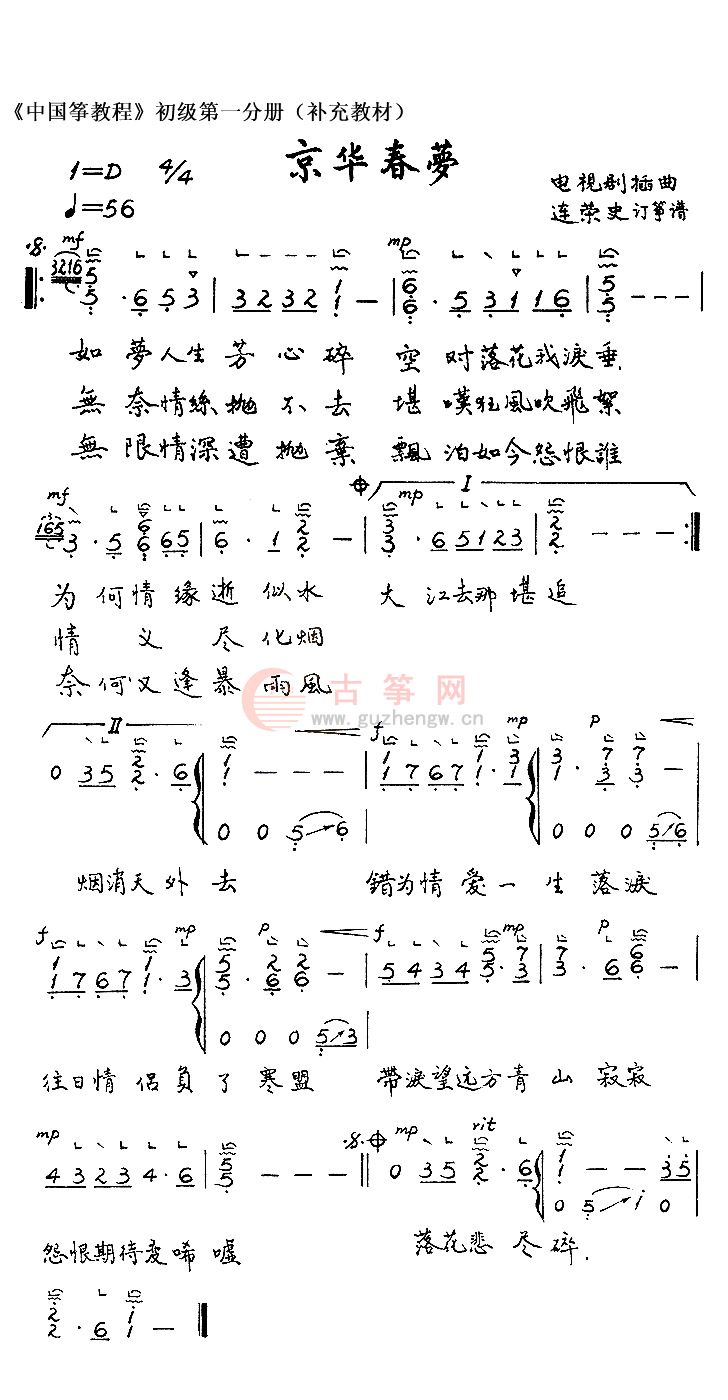 《中国筝教程》初级第一分册（补充教材）
京华春夢
1=D 4/4
♩=56
电视剧插曲
连荣史订筝谱
mf mp
3216 5 5 · 6 5 3 | 3 2 3 2 1 1 — | 6 6 · 5 3 1 1 1 6 | 5 5 — — — |
如夢人生芳心碎 空对落花我淚垂
無奈情絲抛不去 堪嘆狂風吹飛絮
無限情深遭抛棄 飄泊如今怨恨誰
mf I mp
165 3 · 5 6 6 6 5 | 6 · 1 2 2 — | 3 3 · 6 5 1 2 3 | 2 2 — — —
为何情缘逝似水 大江去那堪追
情义尽化烟
奈何又逢暴雨風
古筝网
www.guzhengw.cn
II f mp p
0 3 5 2 2 · 6 | 1 1 — — — | 1 1 7 6 7 1 1 · 3 1 | 3 1 · 7 3 7 3 —
0 0 5 6 | 0 0 0 5 6
烟消天外去 錯为情爱一生落淚
f mp p f mp p
1 1 7 6 7 1 1 · 3 | 5 5 · 2 6 2 6 — | 5 4 3 4 5 5 · 7 3 | 7 3 · 6 6 6 — |
0 0 0 5 3
往日情侣負了寒盟 帶淚望远方青山寂寂
mp mp rit
4 3 2 3 4 · 6 | 5 5 — — — || 0 3 5 2 2 · 6 | 1 1 — — 3 5
0 5 i 0
怨恨期待变唏嘘 落花悲尽碎.
2 2 · 6 i 1 —